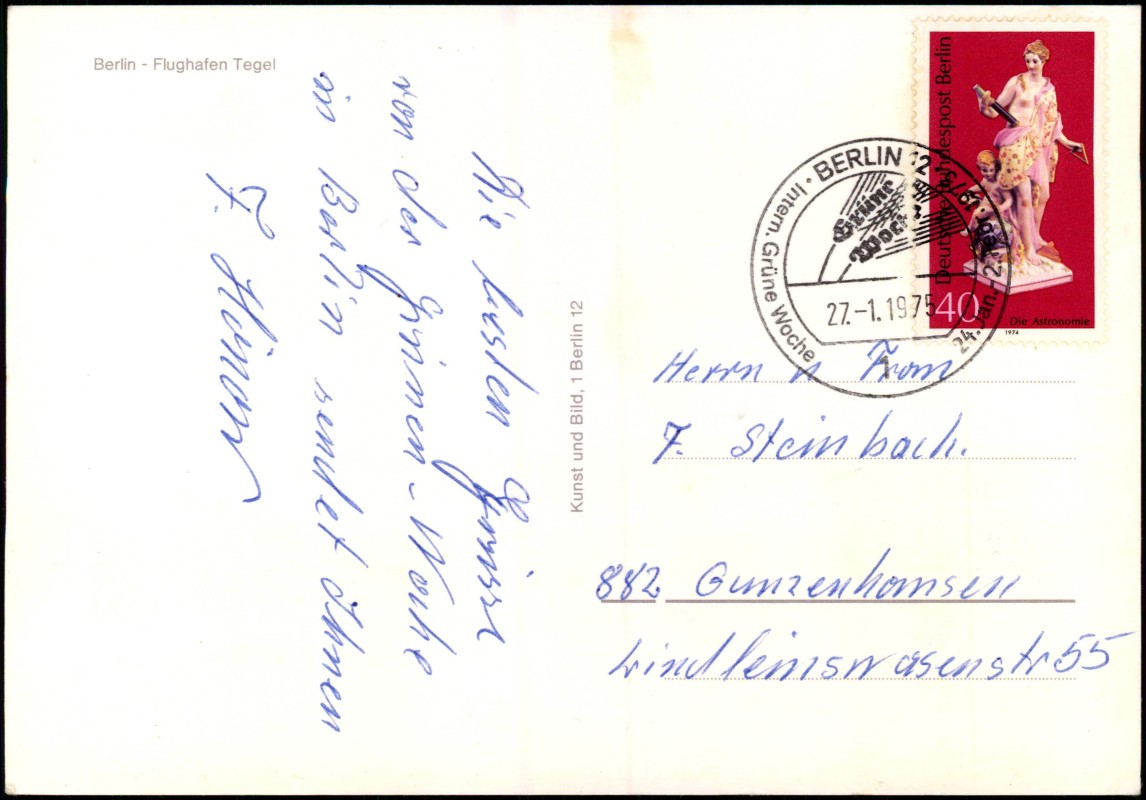 Berlin - Flughafen Tegel
Die besten Grüsse
von der Grünen-Woche
in Berlin sendet Ihnen
F.
Kunst und Bild, 1 Berlin 12
Deutsche Bundespost Berlin
40
Die Astronomie
1974
· BERLIN 12 ·
Intern. Grüne Woche
24. Jan.-2. Febr. 1975
Grüne
Woche
27.-1.1975
1
Herrn u Frau
F. Steinbach.
882 Gunzenhausen
Windleinswasenstr 55